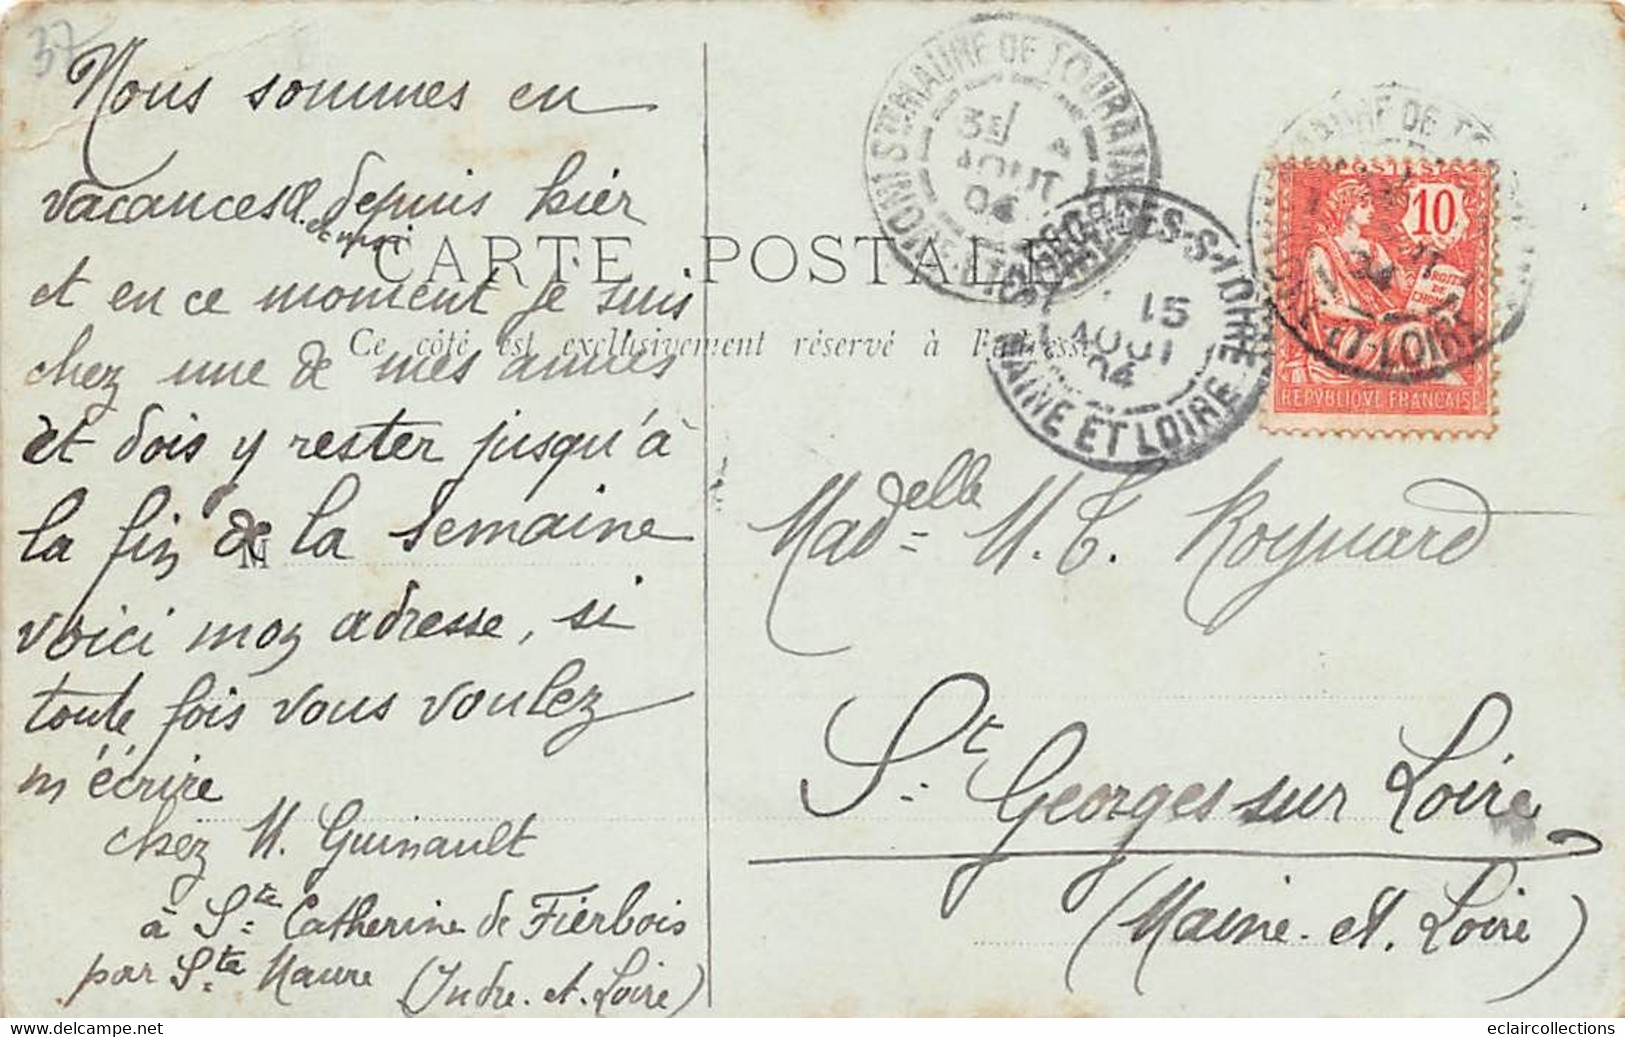 37
Nous sommes en
vacances depuis hier
et en ce moment je suis
chez une de mes amies
et dois y rester jusqu'à
la fin de la semaine
voici mon adresse, si
toute fois vous voulez
m'écrire
chez M. Guinault
à Ste Catherine de Fierbois
par Ste Maure (Indre-et-Loire)
CARTE POSTALE
Ce côté est exclusivement réservé à l'adresse
M
STE MAURE DE TOURAINE
INDRE-ET-
AOUT
04
ST GEORGES-S-LOIRE
15
AOUT
04
MAINE ET LOIRE
MAURE DE
ET-LOIRE
POSTES
10
DROITS
DE
L'HOMME
REPVBLIQVE FRANÇAISE
Madelle M. T. Roynard
St Georges sur Loire
(Maine-et-Loire)
eclaircollections
www.delcampe.net